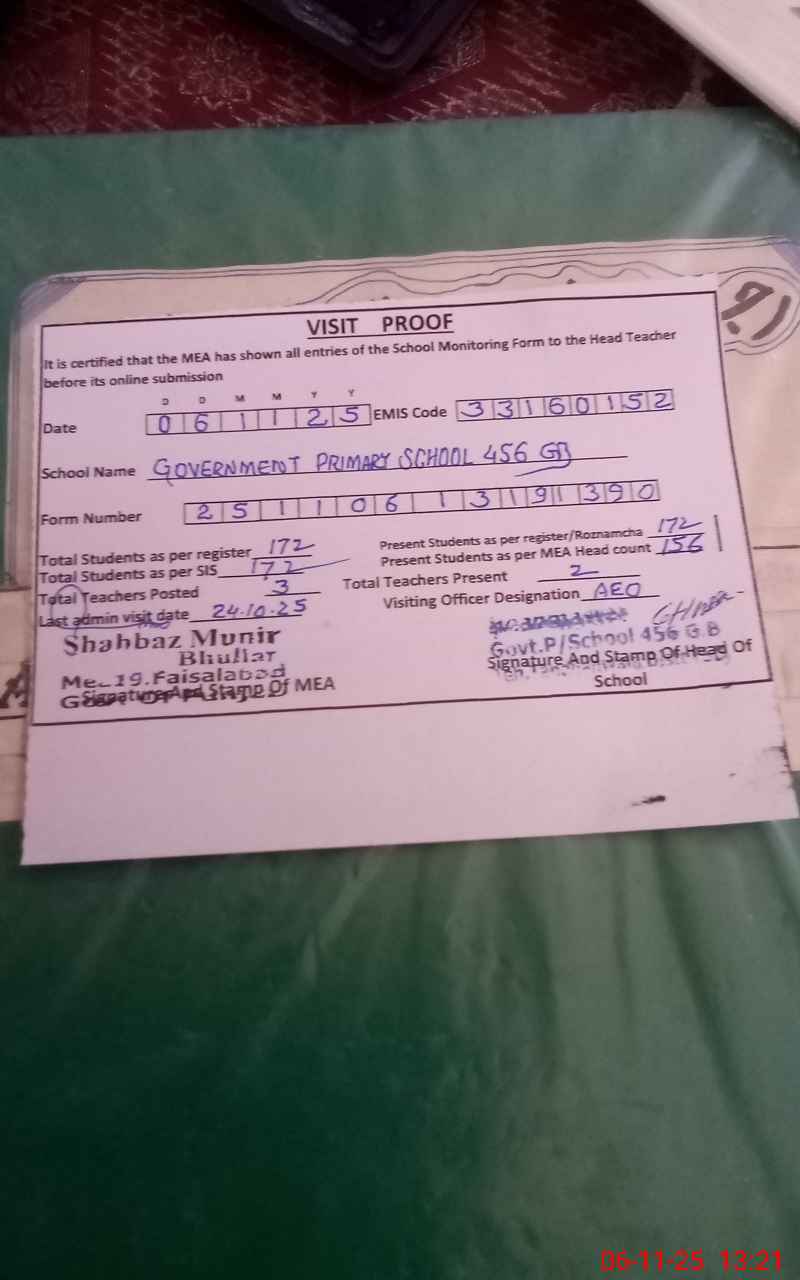 VISIT PROOF
It is certified that the MEA has shown all entries of the School Monitoring Form to the Head Teacher
before its online submission
D D M M Y Y
Date 0 6 1 1 2 5 EMIS Code 3 3 1 6 0 1 5 2
School Name GOVERNMENT PRIMARY SCHOOL 456 GB
Form Number 2 5 1 1 0 6 1 3 1 9 1 3 9 0
Total Students as per register 172 Present Students as per register/Roznamcha 172
Total Students as per SIS 172 Present Students as per MEA Head count 156
Total Teachers Posted 3 Total Teachers Present 2
Last admin visit date 24.10.25 Visiting Officer Designation AEO
Shahbaz Munir
Bhullar
Govt.P/School 456 G.B
19.Faisalabad
Signature And Stamp Of MEA
Signature And Stamp Of Head Of
School
06-11-25 13:21